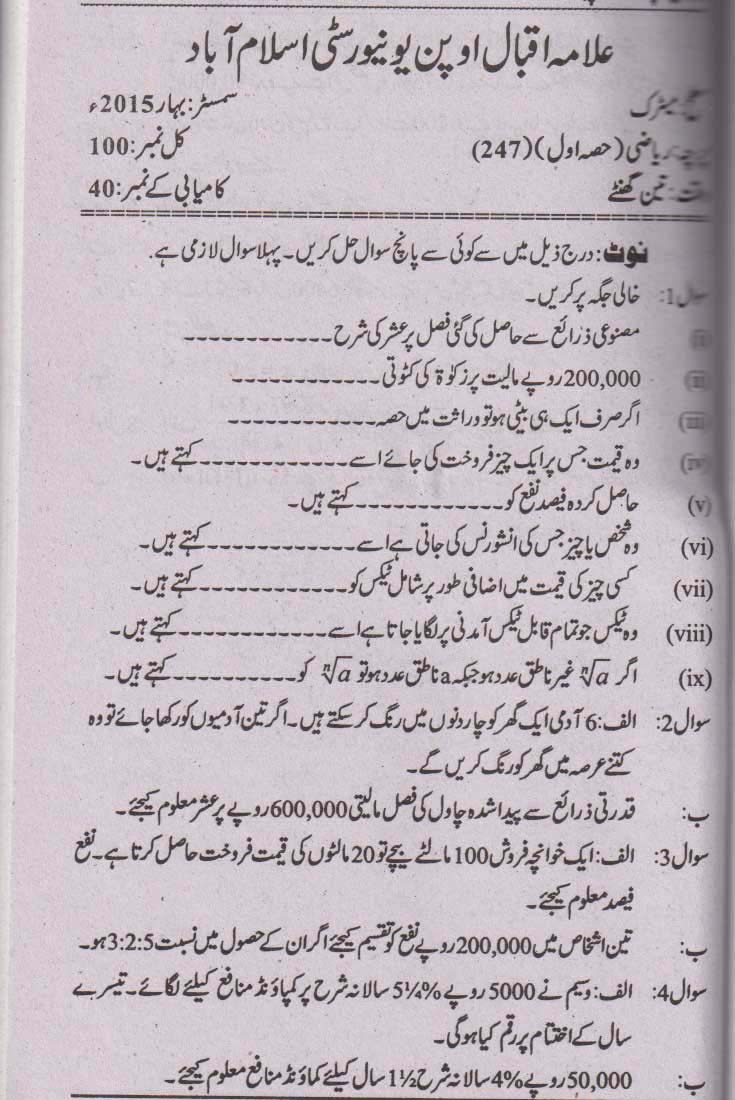 علامہ اقبال اوپن یونیورسٹی اسلام آباد
میٹرک سمسٹر: بہار 2015ء
ریاضی (حصہ اول) (247) کل نمبر: 100
وقت: تین گھنٹے کامیابی کے نمبر: 40
نوٹ: درج ذیل میں سے کوئی سے پانچ سوال حل کریں۔ پہلا سوال لازمی ہے.
سوال 1: خالی جگہ پر کریں۔
(i) مصنوعی ذرائع سے حاصل کی گئی فصل پر عشر کی شرح ------------
(ii) 200,000 روپے مالیت پر زکوٰۃ کی کٹوتی ------------
(iii) اگر صرف ایک ہی بیٹی ہو تو وراثت میں حصہ ------------
(iv) وہ قیمت جس پر ایک چیز فروخت کی جائے اسے ------------ کہتے ہیں۔
(v) حاصل کردہ فیصد نفع کو ------------ کہتے ہیں۔
(vi) وہ شخص یا چیز جس کی انشورنس کی جاتی ہے اسے ------------ کہتے ہیں۔
(vii) کسی چیز کی قیمت میں اضافی طور پر شامل ٹیکس کو ------------ کہتے ہیں۔
(viii) وہ ٹیکس جو تمام قابل ٹیکس آمدنی پر لگایا جاتا ہے اسے ------------ کہتے ہیں۔
(ix) اگر ⁿ√a غیر ناطق عدد ہو جبکہ a ناطق عدد ہو تو ⁿ√a کو ---------- کہتے ہیں۔
سوال 2: الف: 6 آدمی ایک گھر کو چار دنوں میں رنگ کر سکتے ہیں۔ اگر تین آدمیوں کو رکھا جائے تو وہ
کتنے عرصہ میں گھر کو رنگ کریں گے۔
ب: قدرتی ذرائع سے پیدا شدہ چاول کی فصل مالیتی 600,000 روپے پر عشر معلوم کیجئے۔
سوال 3: الف: ایک خوانچہ فروش 100 مالٹے بیچے تو 20 مالٹوں کی قیمت فروخت حاصل کرتا ہے۔ نفع
فیصد معلوم کیجئے۔
ب: تین اشخاص میں 200,000 روپے نفع کو تقسیم کیجئے اگر ان کے حصول میں نسبت 3:2:5 ہو۔
سوال 4: الف: وسیم نے 5000 روپے %5¼ سالانہ شرح پر کمپاؤنڈ منافع کیلئے لگائے۔ تیسرے
سال کے اختتام پر رقم کیا ہوگی۔
ب: 50,000 روپے %4 سالانہ شرح 1½ سال کیلئے کماؤنڈ منافع معلوم کیجئے۔